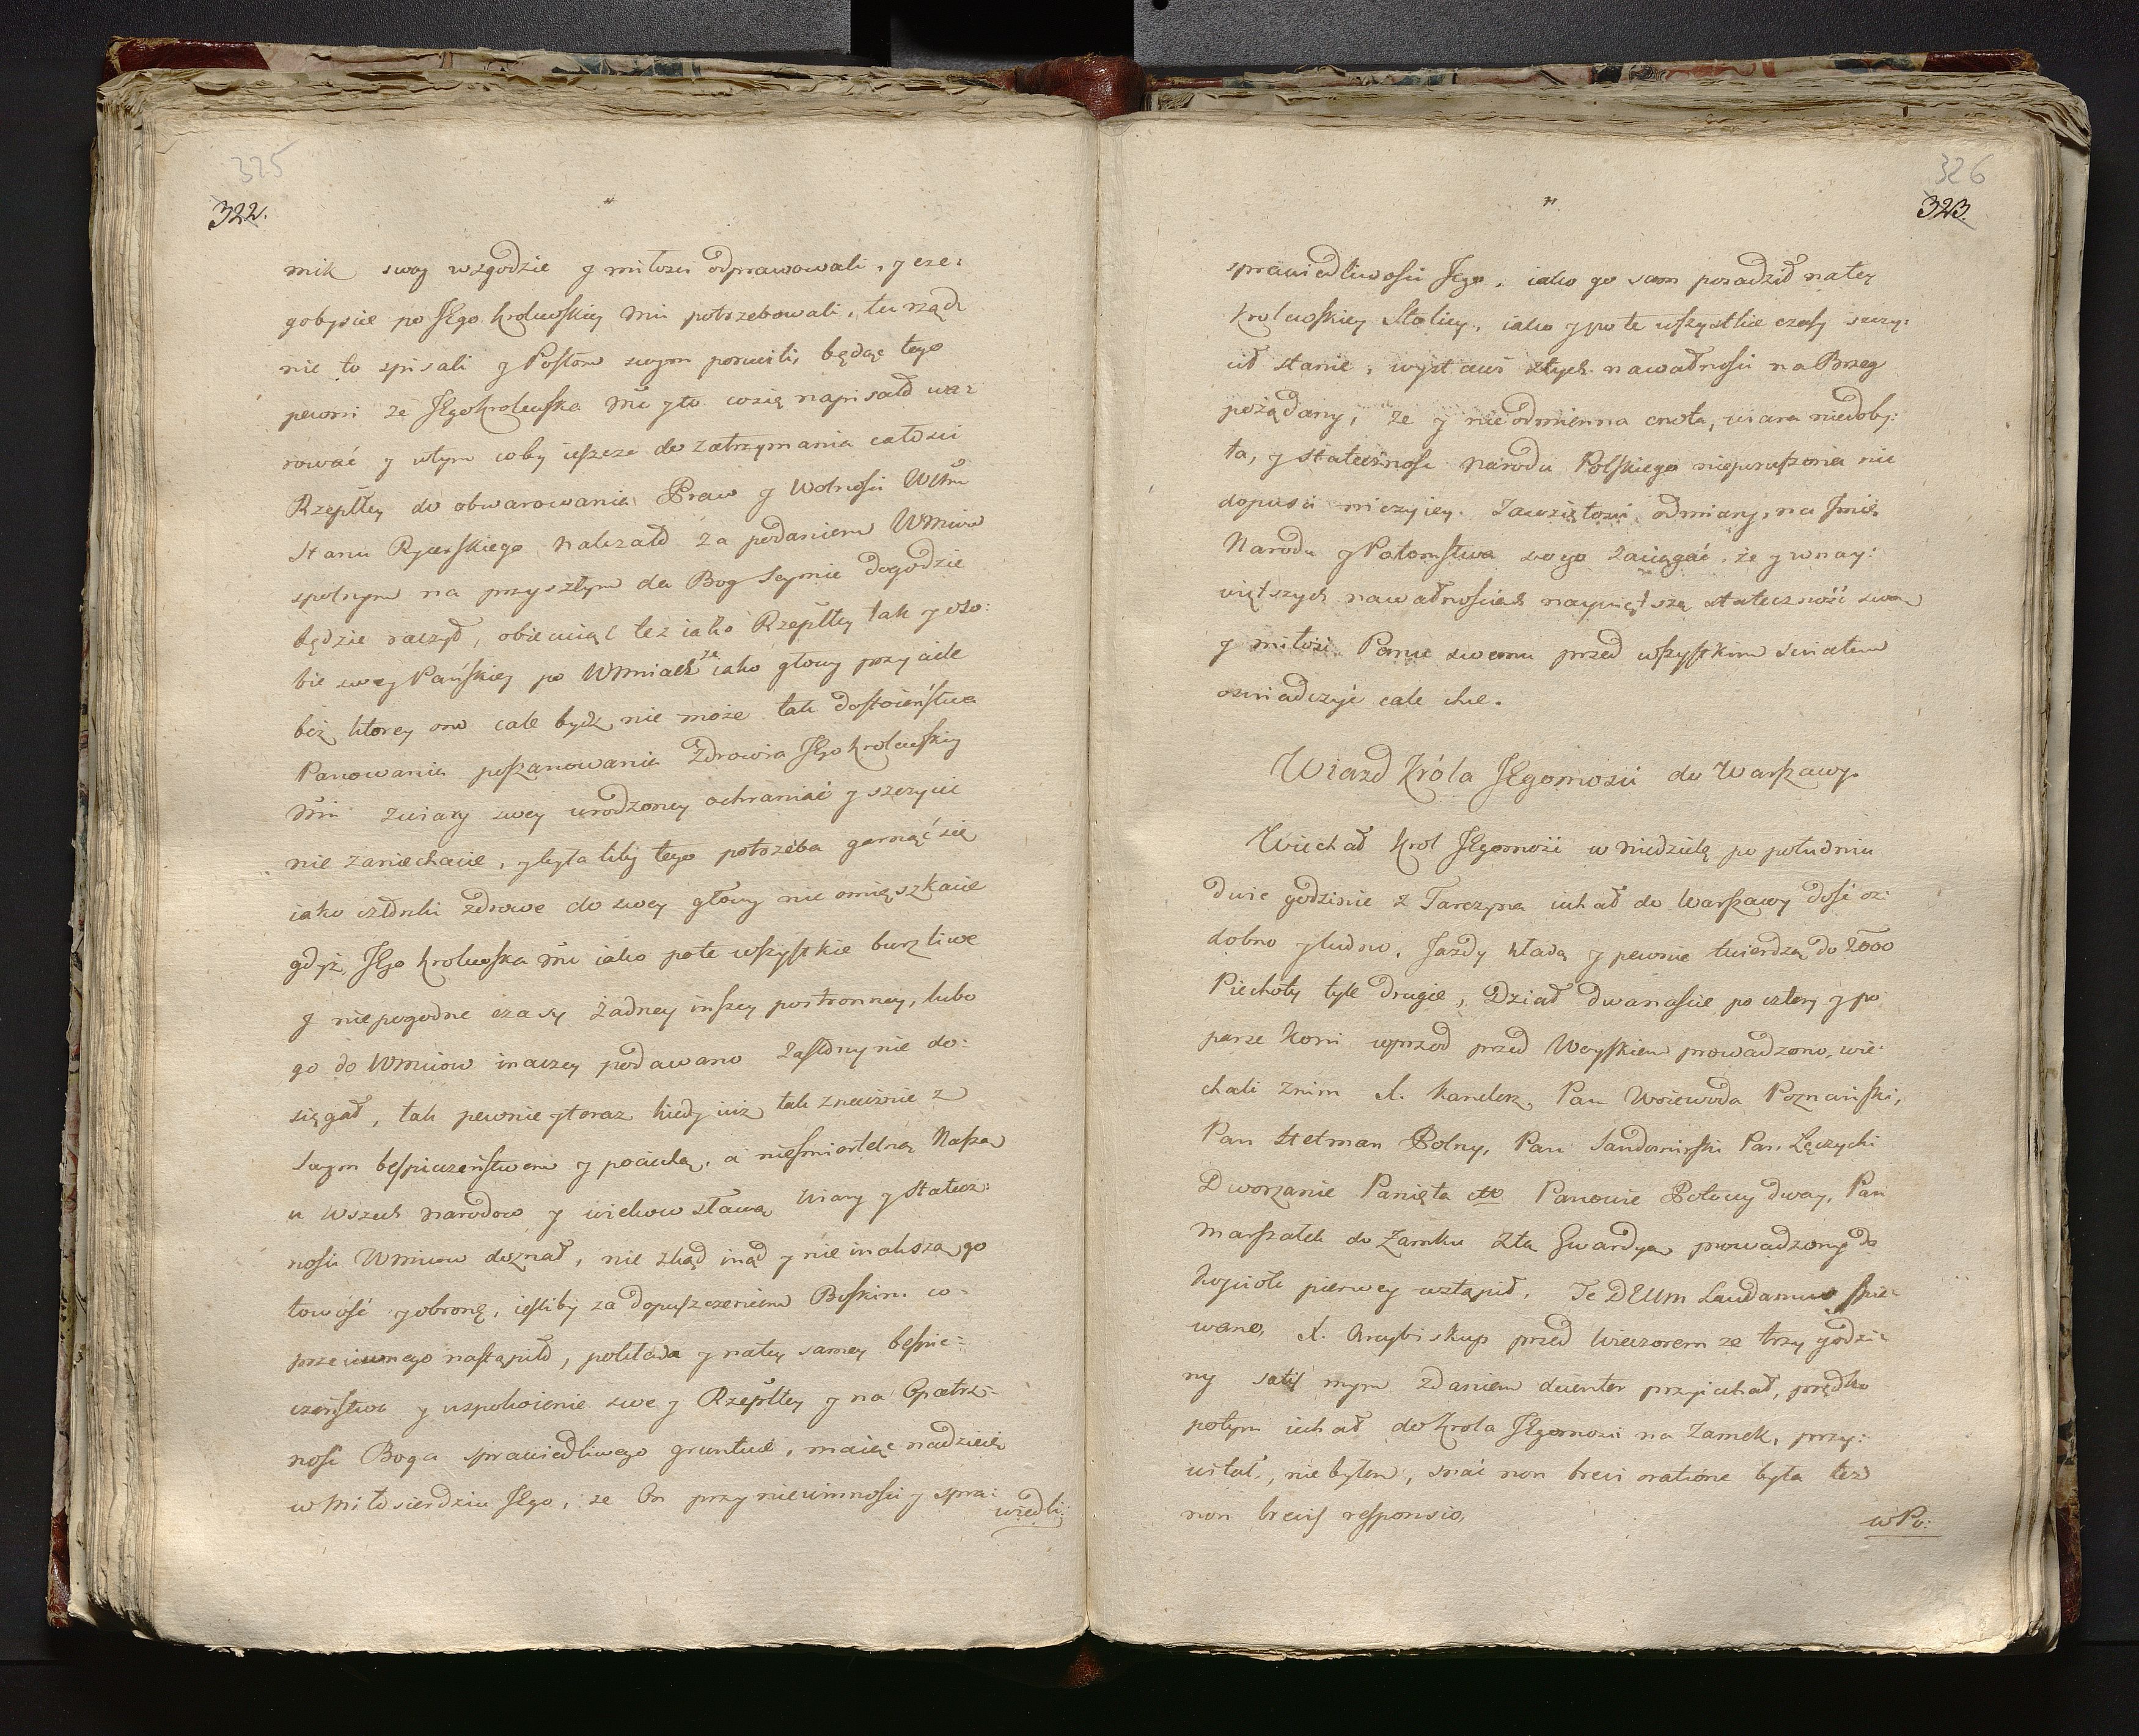 325
322.
mik swoy wzgodzie y miłości odprawowali, y cze:
gobyscie po JEgo Krolewskiey Mci potrzebowali, tu rząd:
nie to spisali y Posłom swym porucili, będąc tego
pewni że JEgoKrolewska Mć y to cosię napisało wa:
rować y wtym coby ieszcze do zatrzymania całości
Rzeplltey do obwarowania Praw y Wolności WMci
Stanu Rycerskiego należało za podaniem WMciow
spolnym na przyszłym da Bog Seymie dogodzie
będzie raczył, obiecuiąc też iako Rzepltey tak y oso:
bie swey Pańskiey po WMciach że iako głowy przyciele
bez ktorey ono cale bydź nie może tak dostoieństwa
Panowania poszanowania Zdrowia JEgoKrolewskiey
Mci zwiary swey urodzoney ochraniać y szczycić
nie zaniechacie, y byłaliby tego potrzeba garnąć się
iako członki zdrowe do swey głowy nie omięszkacie
gdyż JEgo Krolewska Mć iako po te wszystkie burzliwe
y niepogodne czasy żadney inszey postronney, lubo
go do WMciow inaczey podawano Zasłony nie do:
sięgał, tak pewnie y teraz kiedy iuż tak znacznie z
swym bespieczeństwem y pociechą, a nieśmiertelną Naszą
u wszech narodow y wiekow sławą wiary y statecz:
ności WMciow doznał, nie skąd inąd y nie inakszą go
towość y obronę, iesliby za dopuszczeniem Boskim co
przeciwnego nastąpiło, pokłada y na tey samey bespie:
czeństwo y uspokoienie swey Rzepltey y na Opatrz:
ność Boga sprawiedliwego gruntuie, maiąc nadzieię
w Miłosierdziu JEgo, że On przy niewinności y spra:
wiedli:
326
323.
sprawiedliwości JEgo, iako go sam posadził na tey
Krolewskiey Stolicy, iako y po te wszystkie czasy szczy:
cił stanie, wystawi złych nawałności na Brzeg
pożądany, że y nieodmienna cnota, wiara niedoby:
ta, y stateczność Narodu Polskiego nieporuszona nie
dopuści niczyiey Zawziętości odmiany, na Imie
Narodu y Potomstwa swego zaciągać, że y w nay:
większych nawałnościach naywiększą stateczność swą
y miłość Panu swemu przed wszystkim światem
oswiadczyć cale chce.
Wiazd Króla JEgomości do Warszawy.
Wiechał Krol JEgomość w niedzielę po południu
dwie godzinie z Tarczyna iechał do Warszawy dość oz:
dobno y ludno, Jazdy kładą y pewnie twierdzą do 2000
Piechoty tyle drugie, Dział dwanaście po cztery y po
parze koni wprzod przed Woyskiem prowadzono, wie:
chali z nim X. Kanclerz, Pan Woiewoda Poznański,
Pan Hetman Polny, Pan Sandomirski Pan Łęczycki
Dworzanie Panięta etc Panowie Potoccy dway, Pan
Marszałek do Zamku Zta Gwardya prowadzony do
Kościoła pierwey wstąpił, Te DEUm Laudamus spie:
wano, X. Arcybiskup przed Wieczorem ze trzy godzi:
ny satis mym zdaniem decenter przyiechał, prędko
potym iechał do Krola JEgomości na Zamek, przy:
witał, nie byłem, snać non brevi oratione była też
non brevis responsio,
w Po: